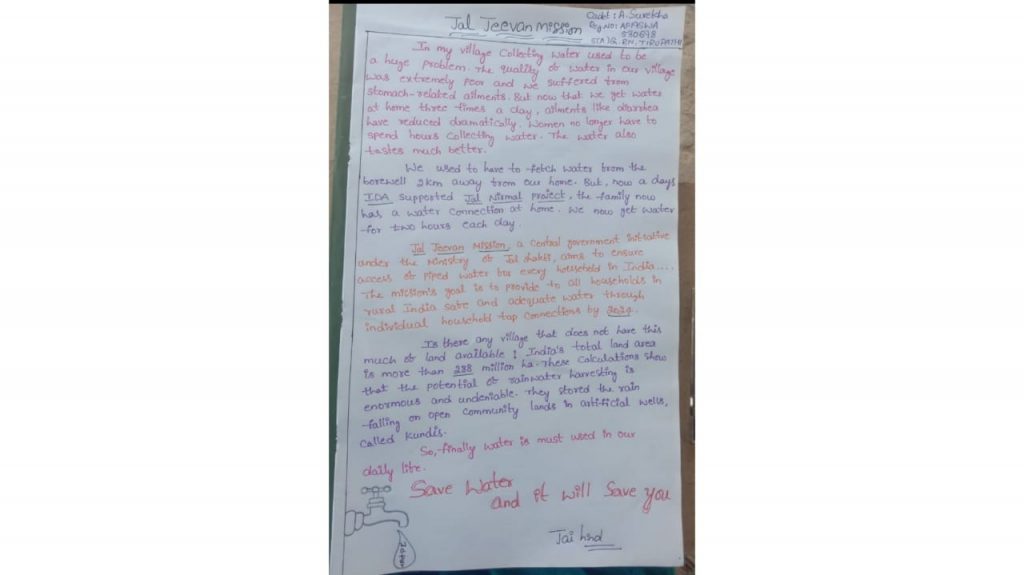 Jal Jeevan Mission
Cadet : A. Surekha
Reg NO: AP19SWA
530698
STA 1G. BN, TIRUPATHI
In my village Collecting water used to be
a huge problem. The quality of water in our village
was extremely poor and we suffered from
stomach-related ailments. But now that we get water
at home three times a day, ailments like diarrhea
have reduced dramatically. Women no longer have to
spend hours Collecting water. The water also
tastes much better.
We used to have to fetch water from the
borewell 2km away from our home. But, now a days
IDA supported Jal Nirmal Project, the family now
has a water connection at home. We now get water
for two hours each day.
Jal Jeevan Mission, a Central government initiative
under the Ministry of Jal shakti, aims to ensure
access of piped water for every household in India....
The mission's goal is to provide to all households in
rural India safe and adequate water through
individual household tap connections by 2024.
Is there any village that does not have this
much of land available ! India's total land area
is more than 288 million ha. These calculations show
that the potential of rainwater harvesting is
enormous and undeniable. They stored the rain
falling on open community lands in artificial wells,
called Kundis.
So, finally water is must used in our
daily life.
Save Water
and it will Save you
Jai hind